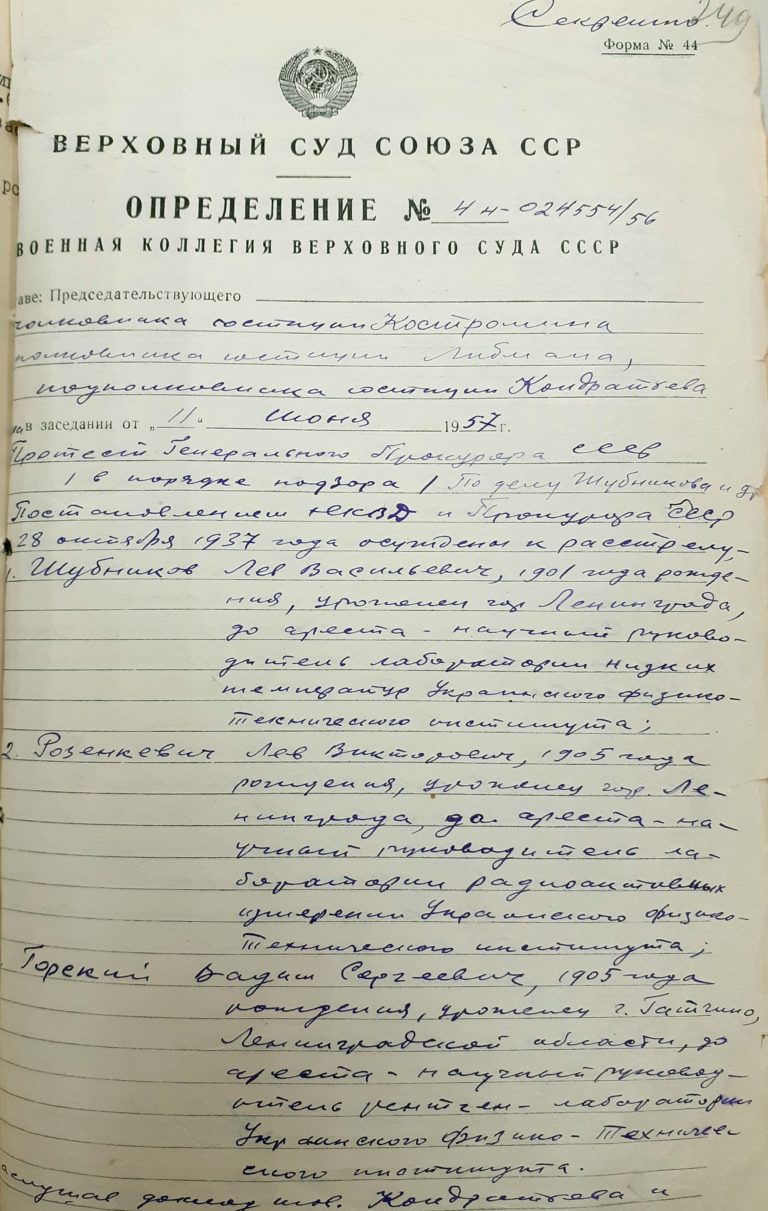 Секретно. 249
Форма № 44
ВЕРХОВНЫЙ СУД СОЮЗА ССР
ОПРЕДЕЛЕНИЕ № 4н-024554/56
ВОЕННАЯ КОЛЛЕГИЯ ВЕРХОВНОГО СУДА СССР
аве: Председательствующего
полковника юстиции Костромина
полковника юстиции Либмана,
подполковника юстиции Кондратьева
в заседании от „11“ июня 1957 г.
Протест Генерального Прокурора СССР
/ в порядке надзора / По делу Шубникова и др
Постановлением НКВД и Прокурора СССР
28 октября 1937 года осуждены к расстрелу,
1. Шубников Лев Васильевич, 1901 года рожде-
ния, уроженец гор Ленинграда,
до ареста - научный руково-
дитель лаборатории низких
температур Украинского физико-
технического института;
2. Розенкевич Лев Викторович, 1905 года
рождения, уроженец гор. Ле-
нинграда, до ареста - на-
учный руководитель ла-
боратории радиоактивных
измерений Украинского физико-
Технического института;
Горский Вадим Сергеевич, 1905 года
рождения, уроженец г. Гатчино,
Ленинградской области, до
ареста - научный руковод-
итель рентген-лаборатории
Украинского Физико-Техниче-
ского института.
аслушав доклад тов. Кондратьева и